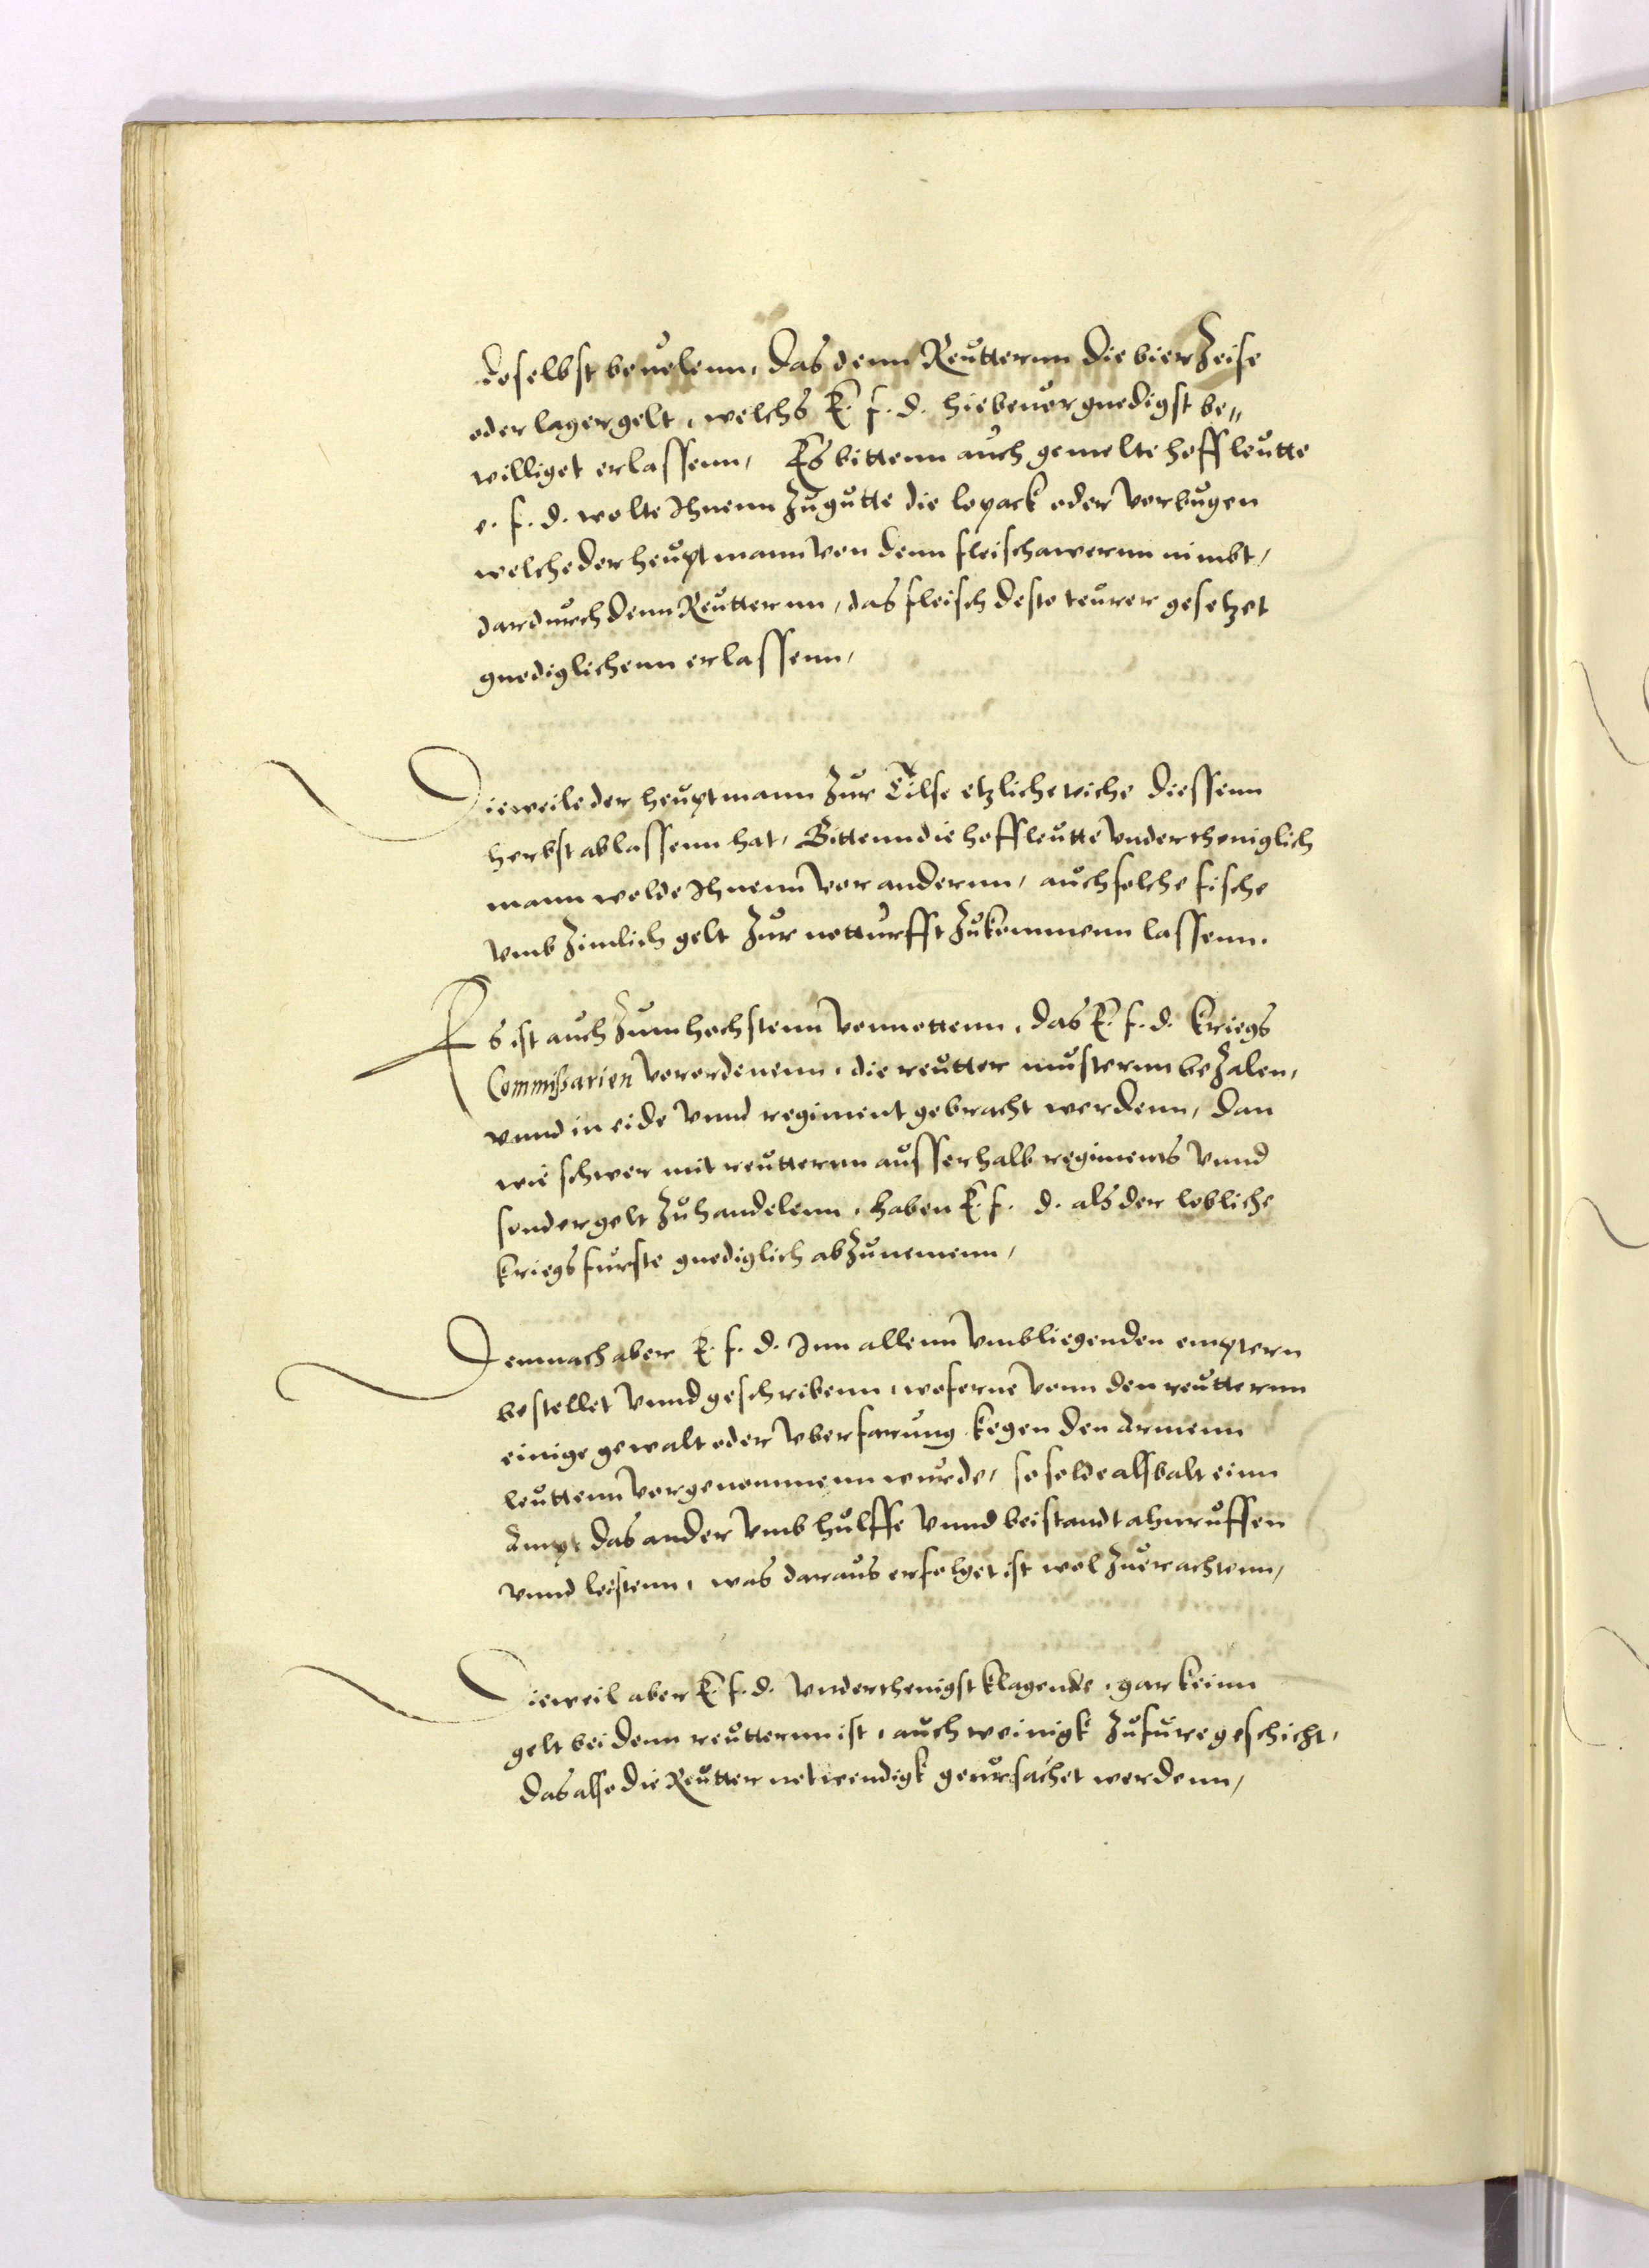 doselbst beuelenn, das denn Reutternn die bierzeise
oder lagergelt, welchs E. f. d. hiebeuor gnedigst be„
williget erlassenn, Es bittenn auch gemelte hoffleutte
e. f. d. wolte Ihnenn zugutte die lopack oder vorbugen
welche der heuptmann von denn fleischawernn nimbt,
dardurch denn Reutternn, das fleisch deste teurer gesetzet
gnediglichenn erlassenn,
Dieweile der heuptmann zur Tilse etzliche tiche diessenn
herbst ablassenn hat, Bittenn die hoffleutte vndertheniglich
mann wolde Ihnenn vor andernn, auch solche fische
vmb zimlich gelt zur notturfft zukommenn lassenn.
Es ist auch zum hochstenn vonnottenn, das E. f. d. kriegs
Commissarien verordenenn, die reutter musternn bezalen,
vnnd in eide vnnd regiment gebracht werdenn, dan
wie schwer mit reutternn ausserhalb regiments vnnd
sonder gelt zuhandelenn, haben E. f. d. als der lobliche
kriegsfurste gnediglich abzunemenn,
Demnach aber E. f. d. Inn allenn vmbliegenden emptern
bestellet vnnd geschribenn, woferne vonn den reutternn
einige gewalt oder vberfarung kegen den armenn
leuttenn vorgenommenn wurde, so solde alsbalt einn
Ampt das ander vmb hulffe vnnd beistandt ahnruffen
vnnd leistenn, was daraus erfolget ist wol zuerachtenn,
Dieweil aber E. f. d. vnderthenigst klagende, gar keinn
gelt bei denn reutternn ist, auch weinigk zufure geschicht,
das also die Reutter notwendigk geursachet werdenn,